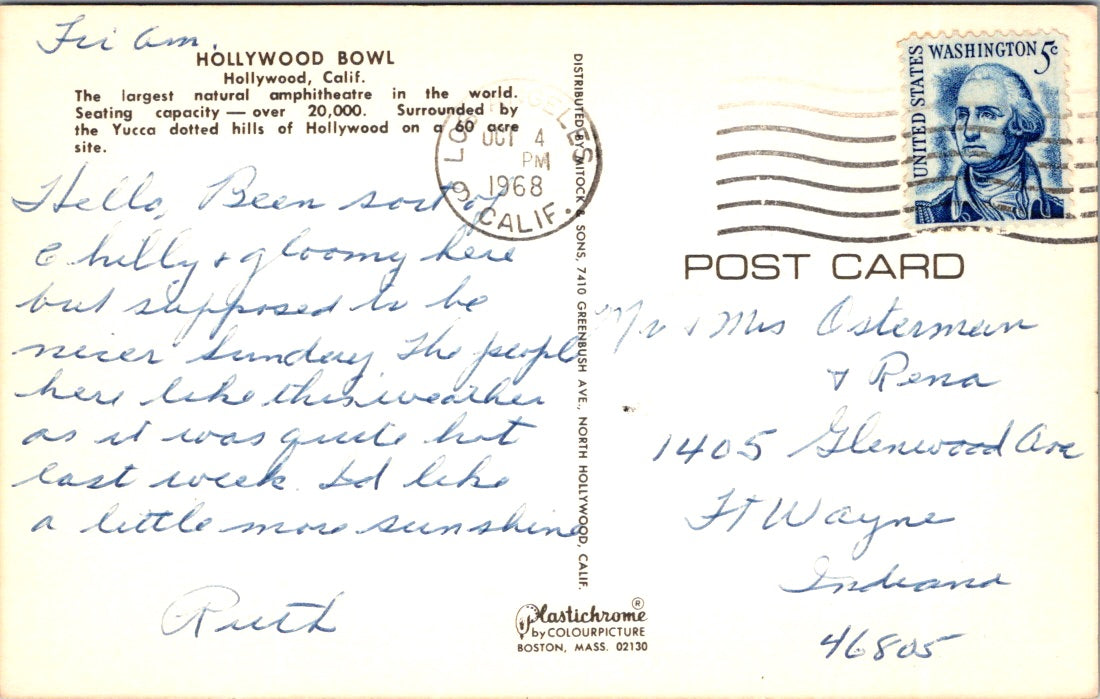 Fri am.
HOLLYWOOD BOWL
Hollywood, Calif.
The largest natural amphitheatre in the world.
Seating capacity — over 20,000. Surrounded by
the Yucca dotted hills of Hollywood on a 60 acre
site.
Hello, Been sort of
chilly & gloomy here
but supposed to be
nicer Sunday. The people
here like this weather
as it was quite hot
last week. I'd like
a little more sunshine
Ruth
DISTRIBUTED BY MITOCK & SONS, 7410 GREENBUSH AVE., NORTH HOLLYWOOD, CALIF.
LOS ANGELES
CALIF.
OCT 4
PM
1968
9
UNITED STATES
WASHINGTON 5c
POST CARD
Mr & Mrs Osterman
& Rena
1405 Glenwood Ave
Ft Wayne
Indiana
46805
Plastichrome®
by COLOURPICTURE
BOSTON, MASS. 02130